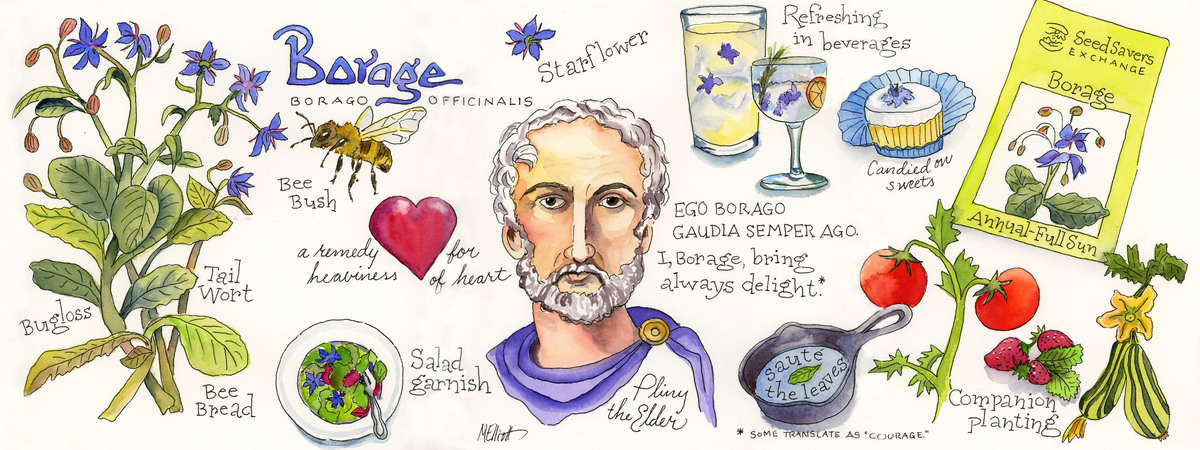 Borage
BORAGO OFFICINALIS
Starflower
Refreshing
in beverages
Candied on
sweets
Seed Savers
EXCHANGE
Borage
Annual-Full Sun
Bee
Bush
a remedy for
heaviness of heart
EGO BORAGO
GAUDIA SEMPER AGO.
I, Borage, bring
always delight.*
Tail
Wort
Bugloss
Bee
Bread
Salad
garnish
Pliny
the Elder
MElliott
saute
the leaves
Companion
planting
* SOME TRANSLATE AS "COURAGE."